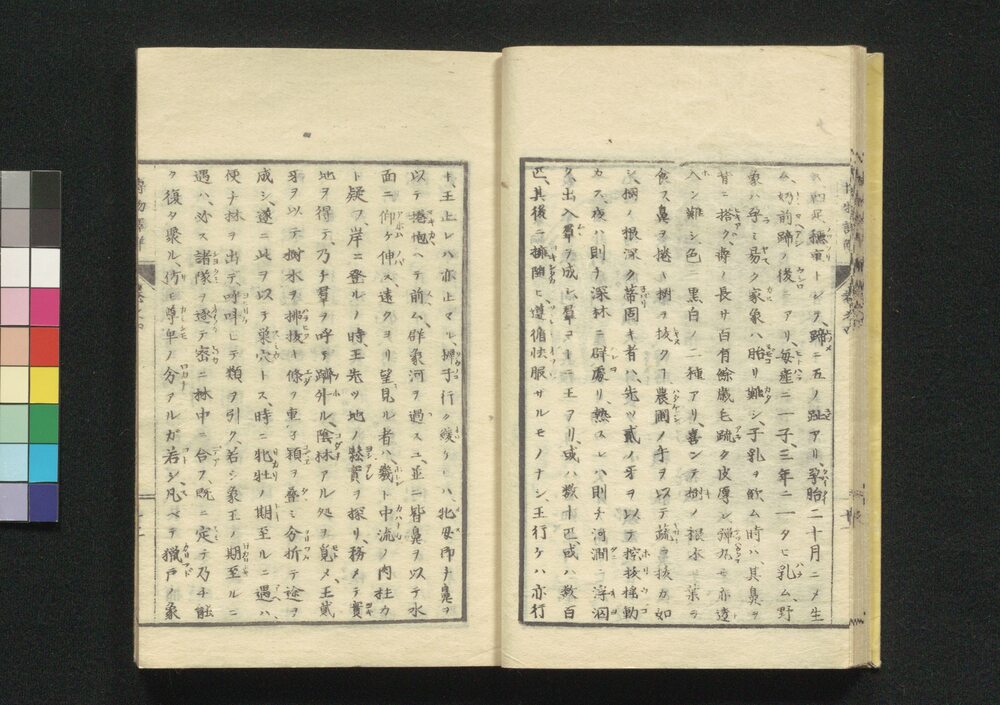 四足穂重ニシテ、蹄ニ五ノ趾アリ、孕胎二十月ニメ生
ム、奶前蹄ノ後ニアリ、毎産ニ一子、三年ニ一タヒ乳ム、野
象ハ孕ミ易ク家象ハ胎リ難シ、子乳ヲ飲ム時ハ、其鼻ヲ
背ニ搭ク、寿ノ長サ百有餘歳毛疏ク皮厚シ弾丸モ亦透
入シ難シ、色ニ黒白ノ二種アリ、喜ンデ樹ノ根木ノ葉ヲ
食ス鼻ヲ捲キ樹ヲ抜クヿ農圃ノ手ヲ以テ蔬ヲ抜カ如
シ、樹ノ根深ク蒂固キ者ハ、先ツ貳ノ牙ヲ以テ控抜揺動
カス、夜ハ則チ深林ニ群處シ、熱スレハ則チ河澗ニ浮泅
ク、出入羣ヲ成シ、羣コトニ王アリ、或ハ数十匹或ハ数百
匹、其後ニ排随ヒ、遵循快服サルモノナシ、王行ケハ亦行
キ、王止レハ亦止マレ、掃子行ク緩ケレハ、牝母即チ鼻ヲ
以テ捲抱ヘテ前ム、群象河ヲ過ス、並ニ皆鼻ヲ以テ水
面ニ仰ケ伸ス、遠クヨリ望見ル者ハ、幾ト中流ノ肉柱カ
ト疑フ、岸ニ登ルノ時、王先ツ地ノ鬆實ヲ探リ、務メテ實
地ヲ得テ、乃チ羣ヲ呼テ躋外ル、陰林アル処ヲ覓メ、王貳
牙ヲ以テ樹木ヲ排抜キ條ヲ重子穎ヲ疊ミ分折テ途ヲ
成シ、遂ニ此ヲ以テ巣穴トス、時ニ牝牡ノ期至ルニ遇ハヽ
便チ林ヲ出テ、呼叫シテ類ヲ引ク、若シ象王ノ期至ルニ
遇ハヽ、必ス諸隊ヲ逐テ密ニ林中ニ合フ、既ニ定テ乃チ能
ク復タ聚ル、仿モ尊卑ノ分アルガ若シ、凡ベテ獵戸ノ象